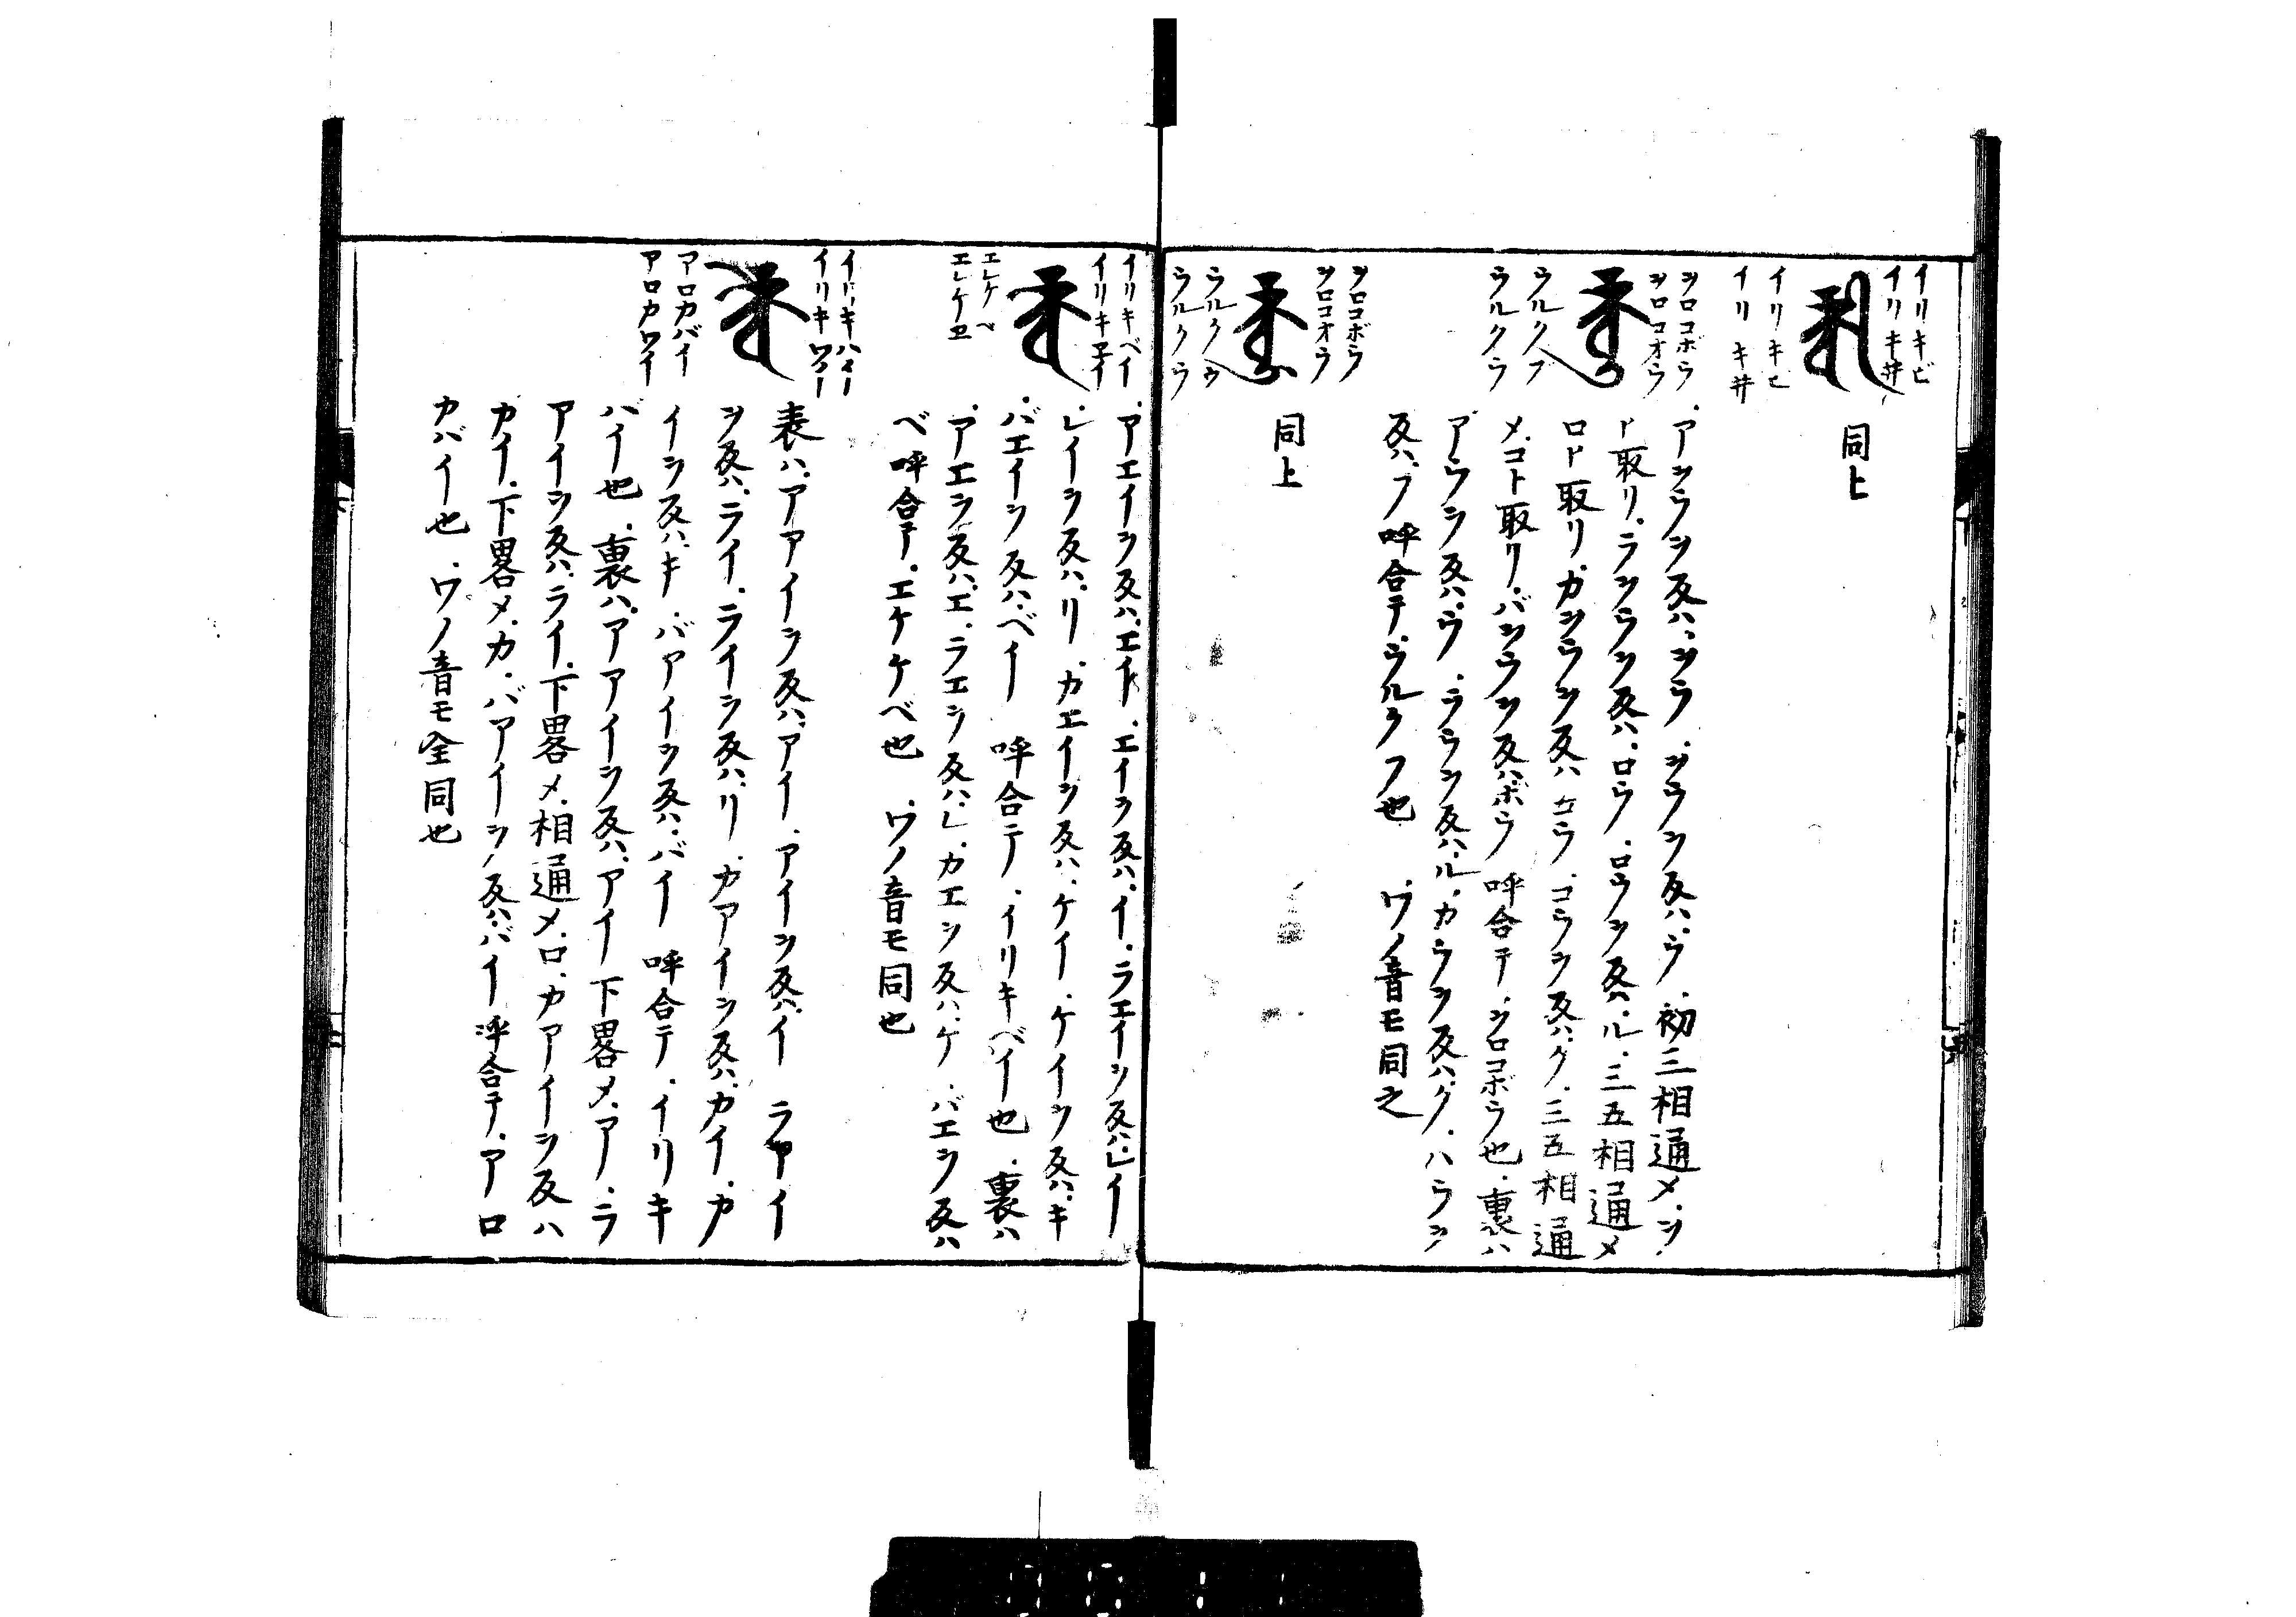 イリキビ
イリキ井
イリキヒ
イリキ井
同上
ヲロコボウ
ヲロコオウ
ウルクブ
ウルクウ
アヲウヲ反ハ、ヲウ、ヲウヲ反ハ、ウ、初三相通メ、ヲ
ト取リ、ラヲウヲ反ハ、ロウ、ロウヲ反ハ、ル、三五相通メ
ロト取リ、カヲウヲ反ハコウ、コウヲ反ハ、ク、三五相通
メ、コト取リ、バヲウヲ反ハボウ 呼合テ、ヲロコボウ也、裏ハ
アウヲ反ハ、ウ、ラウヲ反ハ、ル、カウヲ反ハ、ク、ハウヲ
反ハ、フ 呼合テ、ウルクフ也 、ワノ音モ同之
ヲロコボウ
ヲロコオウ
ウルクウ
ウルクウ
同上
イリキベイ
イリキヱイ
エレケベ
エレケヱ
アエイヲ反ハ、エイ、エイヲ反ハ、イ、ラエイヲ反ハ、レイ
レイヲ反ハ、リ、カエイヲ反ハ、ケイ、ケイヲ反ハ、キ
バエイヲ反ハ、ベイ 呼合テ、イリキベイ也、裏ハ
アエヲ反ハ、エ、ラエヲ反ハ、レ、カエヲ反ハ、ケ、バエヲ反ハ
ベ 呼合テ、エケケベ也 、ワノ音モ同也
イリキバイ
イリキワイ
アロカバイ
アロカワイ
表ハ、アアイヲ反ハ、アイ、アイヲ反ハ、イ ラアイ
ヲ反ハ、ライ、ライヲ反ハ、リ、カアイヲ反ハ、カイ、カ
イヲ反ハ、キ、バアイヲ反ハ、バイ 呼合テ、イリキ
バイ也、裏ハ、アアイヲ反ハ、アイ 下畧メ、ア、ラ
アイヲ反ハ、ライ、下畧メ、相通メ、ロ、カアイヲ反ハ
カイ、下畧メ、カ、バアイヲ反ハ、バイ 呼合テ、アロ
カバイ也 、ワノ音モ全同也